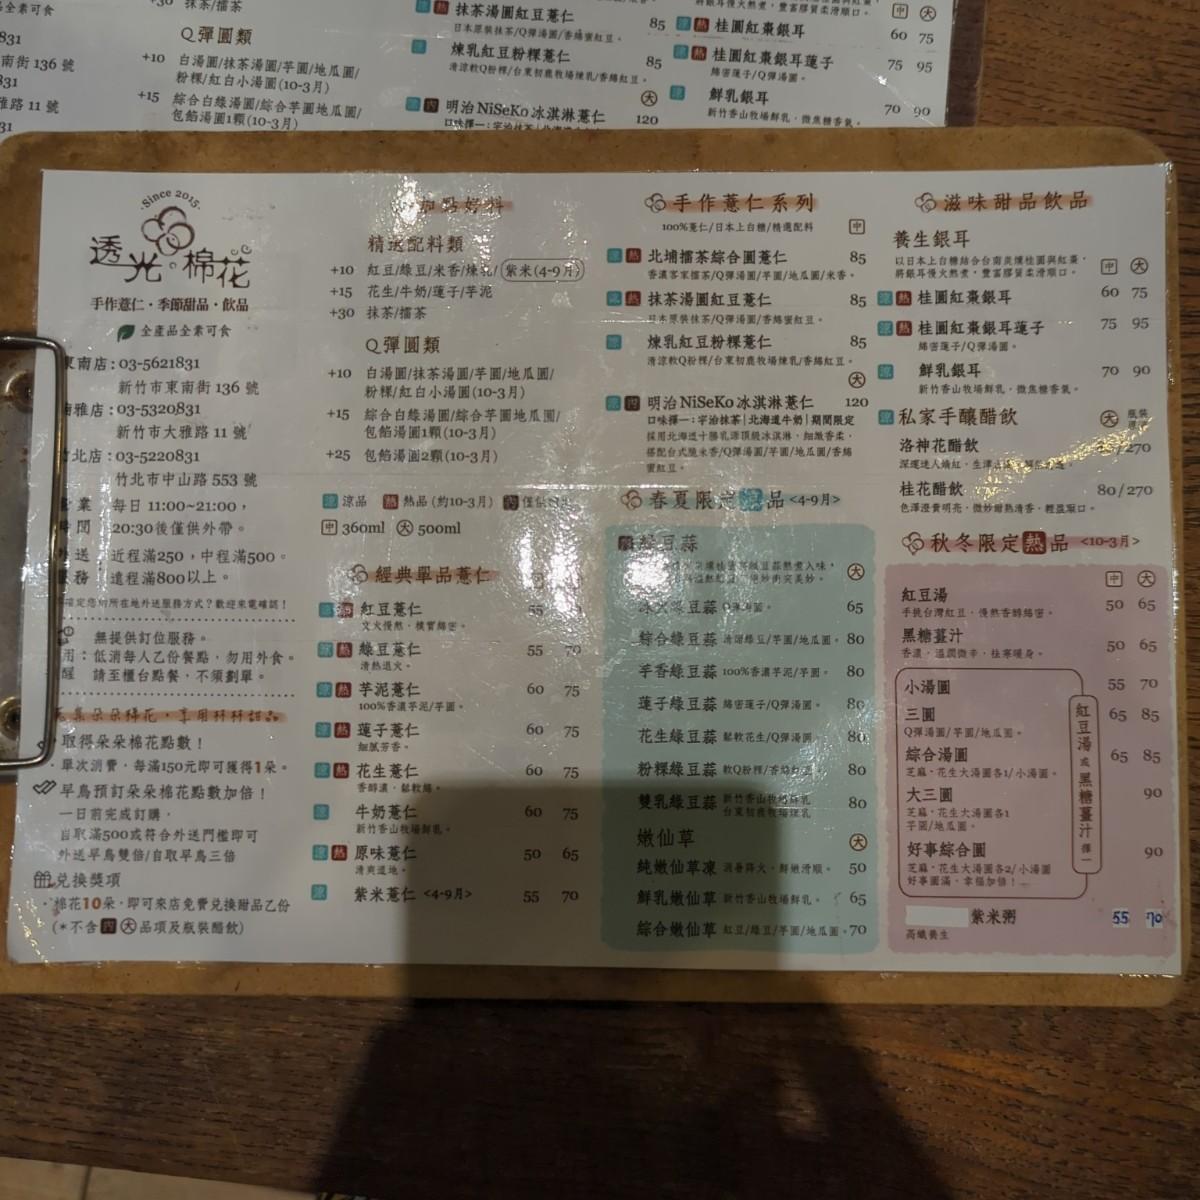 ·Since 2015·
透光·棉花
手作薏仁·季節甜品·飲品
全產品全素可食
東南店:03-5621831
新竹市東南街136號
南雅店:03-5320831
新竹市大雅路11號
竹北店:03-5220831
竹北市中山路553號
業 每日11:00~21:00,
間 20:30後僅供外帶。
送 近程滿250,中程滿500。
務 遠程滿800以上。
確定您的所在地外送服務方式?歡迎來電確認!
無提供訂位服務。
用:低消每人乙份餐點,勿用外食。
醒 請至櫃台點餐,不須劃單。
集朵朵棉花,享用杯杯甜品
取得朵朵棉花點數!
單次消費,每滿150元即可獲得1朵。
早鳥預訂朵朵棉花點數加倍!
一日前完成訂購,
自取滿500或符合外送門檻即可
外送早鳥雙倍/自取早鳥三倍
兌換獎項
棉花10朵,即可來店免費兌換甜品乙份
(*不含 內 大 品項及瓶裝醋飲)
加點好料
精選配料類
+10 紅豆/綠豆/米香/煉乳/紫米(4-9月)
+15 花生/牛奶/蓮子/芋泥
+30 抹茶/擂茶
Q彈圓類
+10 白湯圓/抹茶湯圓/芋圓/地瓜圓/
粉粿/紅白小湯圓(10-3月)
+15 綜合白綠湯圓/綜合芋圓地瓜圓/
包餡湯圓1顆(10-3月)
+25 包餡湯圓2顆(10-3月)
涼 涼品 熱 熱品(約10-3月) 內 僅供
中 360ml 大 500ml
經典單品薏仁
涼 熱 紅豆薏仁 55
文火慢熬,樸實綿密。
涼 熱 綠豆薏仁 55 70
清熱退火。
涼 熱 芋泥薏仁 60 75
100%香濃芋泥/芋圓。
涼 熱 蓮子薏仁 60 75
細膩芳香。
涼 熱 花生薏仁 60 75
香醇濃,鬆軟綿。
涼 牛奶薏仁 60 75
新竹香山牧場鮮乳。
涼 熱 原味薏仁 50 65
清爽道地。
涼 紫米薏仁 <4-9月> 55 70
手作薏仁系列
100%薏仁/日本上白糖/精選配料 中
涼 熱 北埔擂茶綜合圓薏仁 85
香濃客家擂茶/Q彈湯圓/芋圓/地瓜圓/米香。
涼 熱 抹茶湯圓紅豆薏仁 85
日本原裝抹茶/Q彈湯圓/香綿蜜紅豆。
涼 煉乳紅豆粉粿薏仁 85
清涼軟Q粉粿/台東初鹿牧場煉乳/香綿紅豆。
大
涼 內 明治NiSeKo冰淇淋薏仁 120
口味擇一:宇治抹茶|北海道牛奶|期間限定
採用北海道十勝乳源頂級冰淇淋,細緻香柔,
搭配台式脆米香/Q彈湯圓/芋圓/地瓜圓/香綿
蜜紅豆。
春夏限定涼品 <4-9月>
綠豆蒜
大
Q彈湯圓。 65
綜合綠豆蒜 清甜綠豆/芋圓/地瓜圓。 80
芋香綠豆蒜 100%香濃芋泥/芋圓。 80
蓮子綠豆蒜 綿密蓮子/Q彈湯圓。 80
花生綠豆蒜 鬆軟花生/Q彈湯圓。 80
粉粿綠豆蒜 軟Q粉粿/香綿紅豆。 80
雙乳綠豆蒜 新竹香山牧場鮮乳 80
台東初鹿牧場煉乳
嫩仙草 大
純嫩仙草凍 消暑降火,鮮嫩滑順。 50
鮮乳嫩仙草 新竹香山牧場鮮乳。 65
綜合嫩仙草 紅豆/綠豆/芋圓/地瓜圓。 70
滋味甜品飲品
養生銀耳
以日本上白糖結合台南炭燻桂圓與紅棗,
將銀耳慢火熬煮,豐富膠質柔滑順口。 中 大
涼 熱 桂圓紅棗銀耳 60 75
涼 熱 桂圓紅棗銀耳蓮子 75 95
綿密蓮子/Q彈湯圓。
涼 鮮乳銀耳 70 90
新竹香山牧場鮮乳,微焦糖香氣。
涼 私家手釀醋飲 大 瓶裝
洛神花醋飲 /270
深邃迷人嬌紅,生津
桂花醋飲 80/270
色澤澄黃明亮,微妙甜熟清香,輕盈順口。
秋冬限定熱品 <10-3月>
中 大
紅豆湯 50 65
手挑台灣紅豆,慢熬香醇綿密。
黑糖薑汁 50 65
香濃,溫潤微辛,祛寒暖身。
小湯圓 55 70
三圓 65 85
Q彈湯圓/芋圓/地瓜圓。
綜合湯圓 65 85
芝麻,花生大湯圓各1/小湯圓。
大三圓 90
芝麻,花生大湯圓各1
芋圓/地瓜圓。
好事綜合圓 90
芝麻,花生大湯圓各2/小湯圓
好事圓滿,幸福加倍!
紅豆湯或黑糖薑汁擇一
紫米粥 55 70
高纖養生